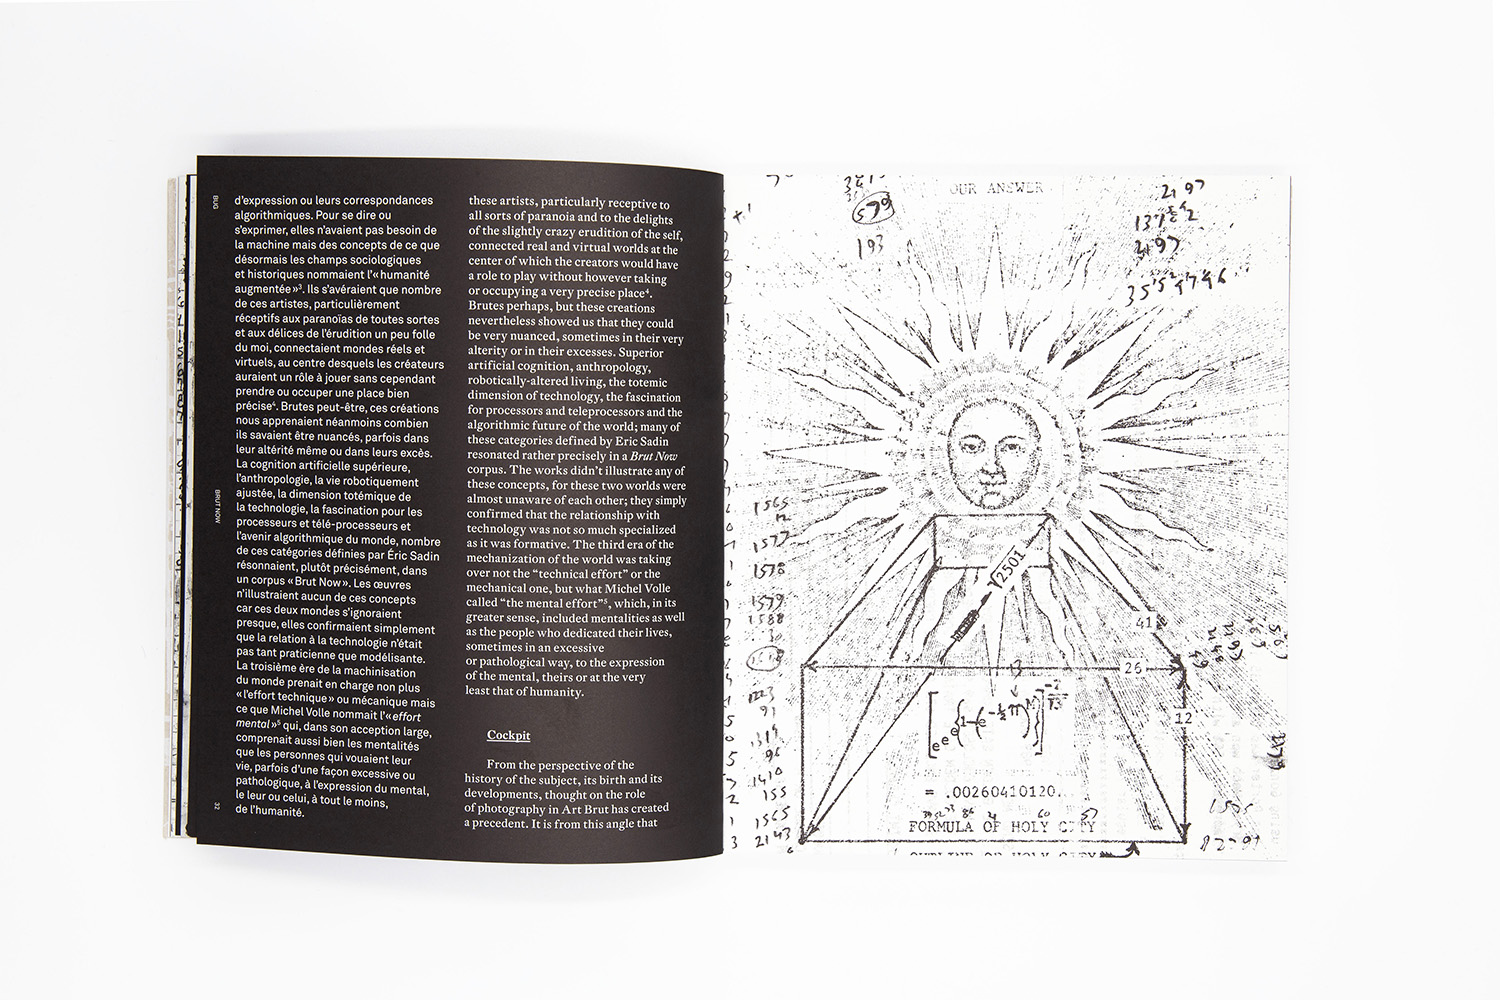 BUG
BRUT NOW
32
d'expression ou leurs correspondances
algorithmiques. Pour se dire ou
s'exprimer, elles n'avaient pas besoin de
la machine mais des concepts de ce que
désormais les champs sociologiques
et historiques nommaient l'« humanité
augmentée »³. Ils s'avéraient que nombre
de ces artistes, particulièrement
réceptifs aux paranoïas de toutes sortes
et aux délices de l'érudition un peu folle
du moi, connectaient mondes réels et
virtuels, au centre desquels les créateurs
auraient un rôle à jouer sans cependant
prendre ou occuper une place bien
précise⁴. Brutes peut-être, ces créations
nous apprenaient néanmoins combien
ils savaient être nuancés, parfois dans
leur altérité même ou dans leurs excès.
La cognition artificielle supérieure,
l'anthropologie, la vie robotiquement
ajustée, la dimension totémique de
la technologie, la fascination pour les
processeurs et télé-processeurs et
l'avenir algorithmique du monde, nombre
de ces catégories définies par Éric Sadin
résonnaient, plutôt précisément, dans
un corpus « Brut Now ». Les œuvres
n'illustraient aucun de ces concepts
car ces deux mondes s'ignoraient
presque, elles confirmaient simplement
que la relation à la technologie n'était
pas tant praticienne que modélisante.
La troisième ère de la machinisation
du monde prenait en charge non plus
« l'effort technique » ou mécanique mais
ce que Michel Volle nommait l'« effort
mental »⁵ qui, dans son acception large,
comprenait aussi bien les mentalités
que les personnes qui vouaient leur
vie, parfois d'une façon excessive ou
pathologique, à l'expression du mental,
le leur ou celui, à tout le moins,
de l'humanité.
these artists, particularly receptive to
all sorts of paranoia and to the delights
of the slightly crazy erudition of the self,
connected real and virtual worlds at the
center of which the creators would have
a role to play without however taking
or occupying a very precise place⁴.
Brutes perhaps, but these creations
nevertheless showed us that they could
be very nuanced, sometimes in their very
alterity or in their excesses. Superior
artificial cognition, anthropology,
robotically-altered living, the totemic
dimension of technology, the fascination
for processors and teleprocessors and the
algorithmic future of the world; many of
these categories defined by Eric Sadin
resonated rather precisely in a Brut Now
corpus. The works didn't illustrate any of
these concepts, for these two worlds were
almost unaware of each other; they simply
confirmed that the relationship with
technology was not so much specialized
as it was formative. The third era of the
mechanization of the world was taking
over not the "technical effort" or the
mechanical one, but what Michel Volle
called "the mental effort"⁵, which, in its
greater sense, included mentalities as well
as the people who dedicated their lives,
sometimes in an excessive
or pathological way, to the expression
of the mental, theirs or at the very
least that of humanity.
Cockpit
From the perspective of the
history of the subject, its birth and its
developments, thought on the role
of photography in Art Brut has created
a precedent. It is from this angle that
OUR ANSWER
579
193
2197
2197
1565
12
1577
1578
1579
1588
30
12501
41
26
13
12
1223
91
1319
96
1410
155
1565
2143
= .00260410120..
60
57
FORMULA OF HOLY CITY
1575